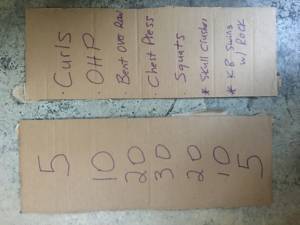 · Curls
· OHP
Bent Over Row
· Chest Press
· Squats
* Skull Crusher
* KB Swing
w/ ROCK
5
10
20
30
20
10
5